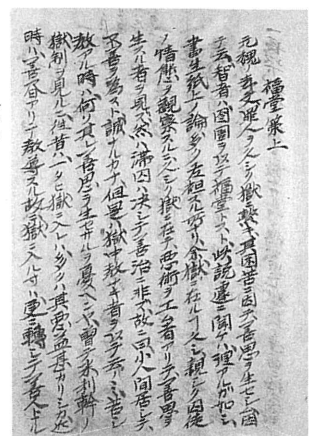 福堂策上
元魏ノ孝文罪人ヲ久シク獄ニ繋キ其困苦ニ因テ善思ヲ生セシム因
テ云智者ハ囹圄ヲ以テ福堂トスト此説遽ニ聞ケハ理アルカ如シ
書生紙上ノ論多ク左袒スル所ナリ余獄ニ在ルコト久シ親シク囚徒
ノ情態ヲ観察スルニ久シク獄ニ在テ悪術ヲ工ム者アリテ善思ヲ
生スル者ヲ見ス然ハ滞囚ハ決シテ善治ニ非ス故ニ曰小人閒居シテ
不善ヲ為ス誠ナルカナ但是ハ獄中教ナキ者ヲ以テ云ノミ若シ
教アル時ハ何ソ其レ善思ヲ生セサルヲ憂ヘンヤ曽テ米利幹ノ
獄制ヲ見ルニ往昔ハ一タヒ獄ニ入レハ多クハ其悪益甚カリシカ近
時ハ善書アリテ教導スル故ニ獄ニ入ル時ハ更ニ轉シテ善人トナル